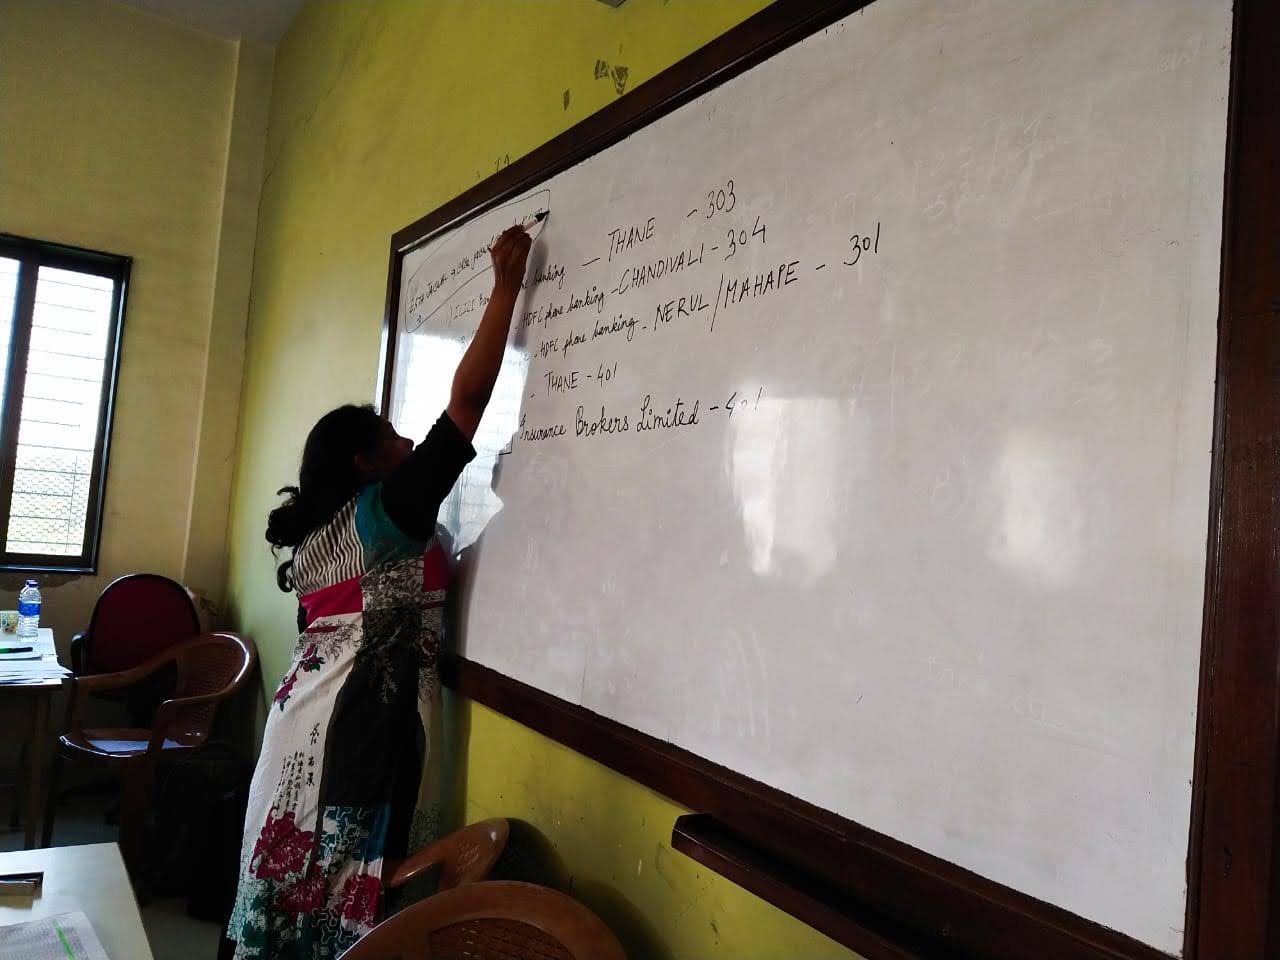 1) ICICI banking — THANE - 303
- HDFC phone banking - CHANDIVALI - 304
- HDFC phone banking - NERUL/MAHAPE - 301
- THANE - 401
Insurance Brokers Limited - 401